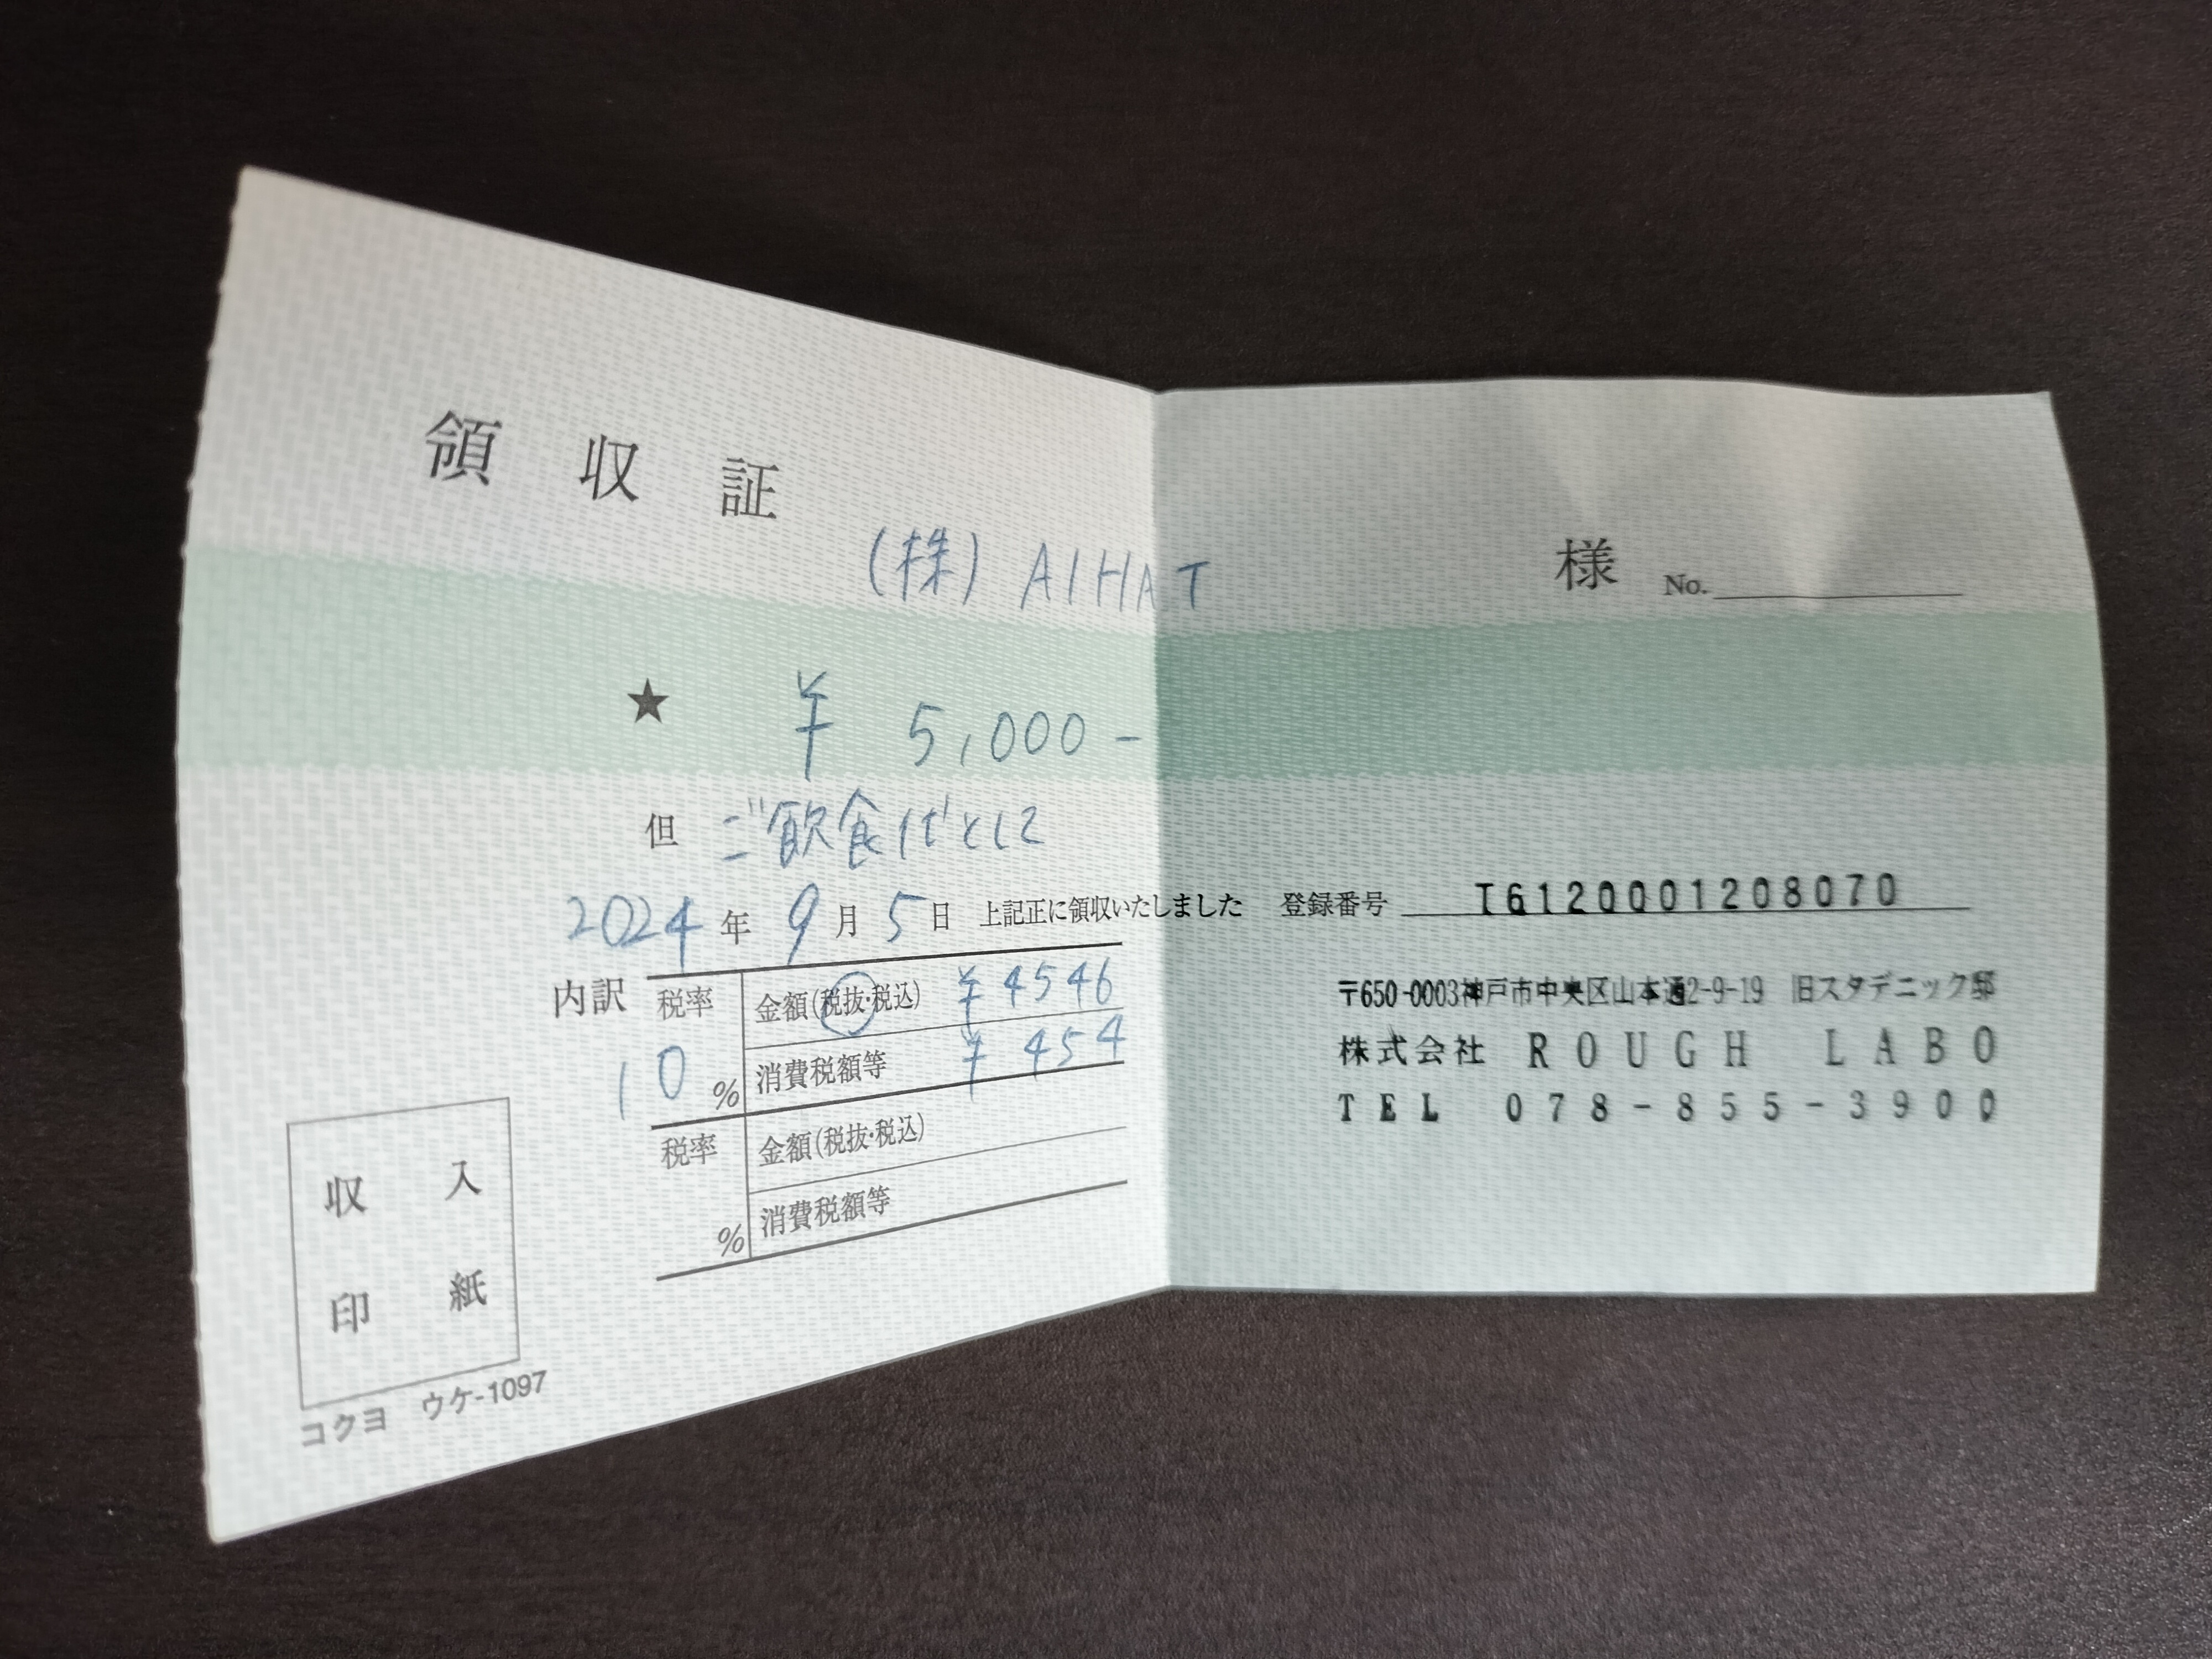 領収証
(株) AIHAT 様 No.
★ ¥ 5,000-
但 ご飲食代として
2024年 9月 5日 上記正に領収いたしました 登録番号 T6120001208070
内訳 税率 10% 金額(税抜・税込) ¥4546
消費税額等 ¥454
税率 % 金額(税抜・税込)
消費税額等
収入印紙
コクヨ ウケ-1097
〒650-0003神戸市中央区山本通2-9-19 旧スタデニック邸
株式会社 ROUGH LABO
TEL 078-855-3900